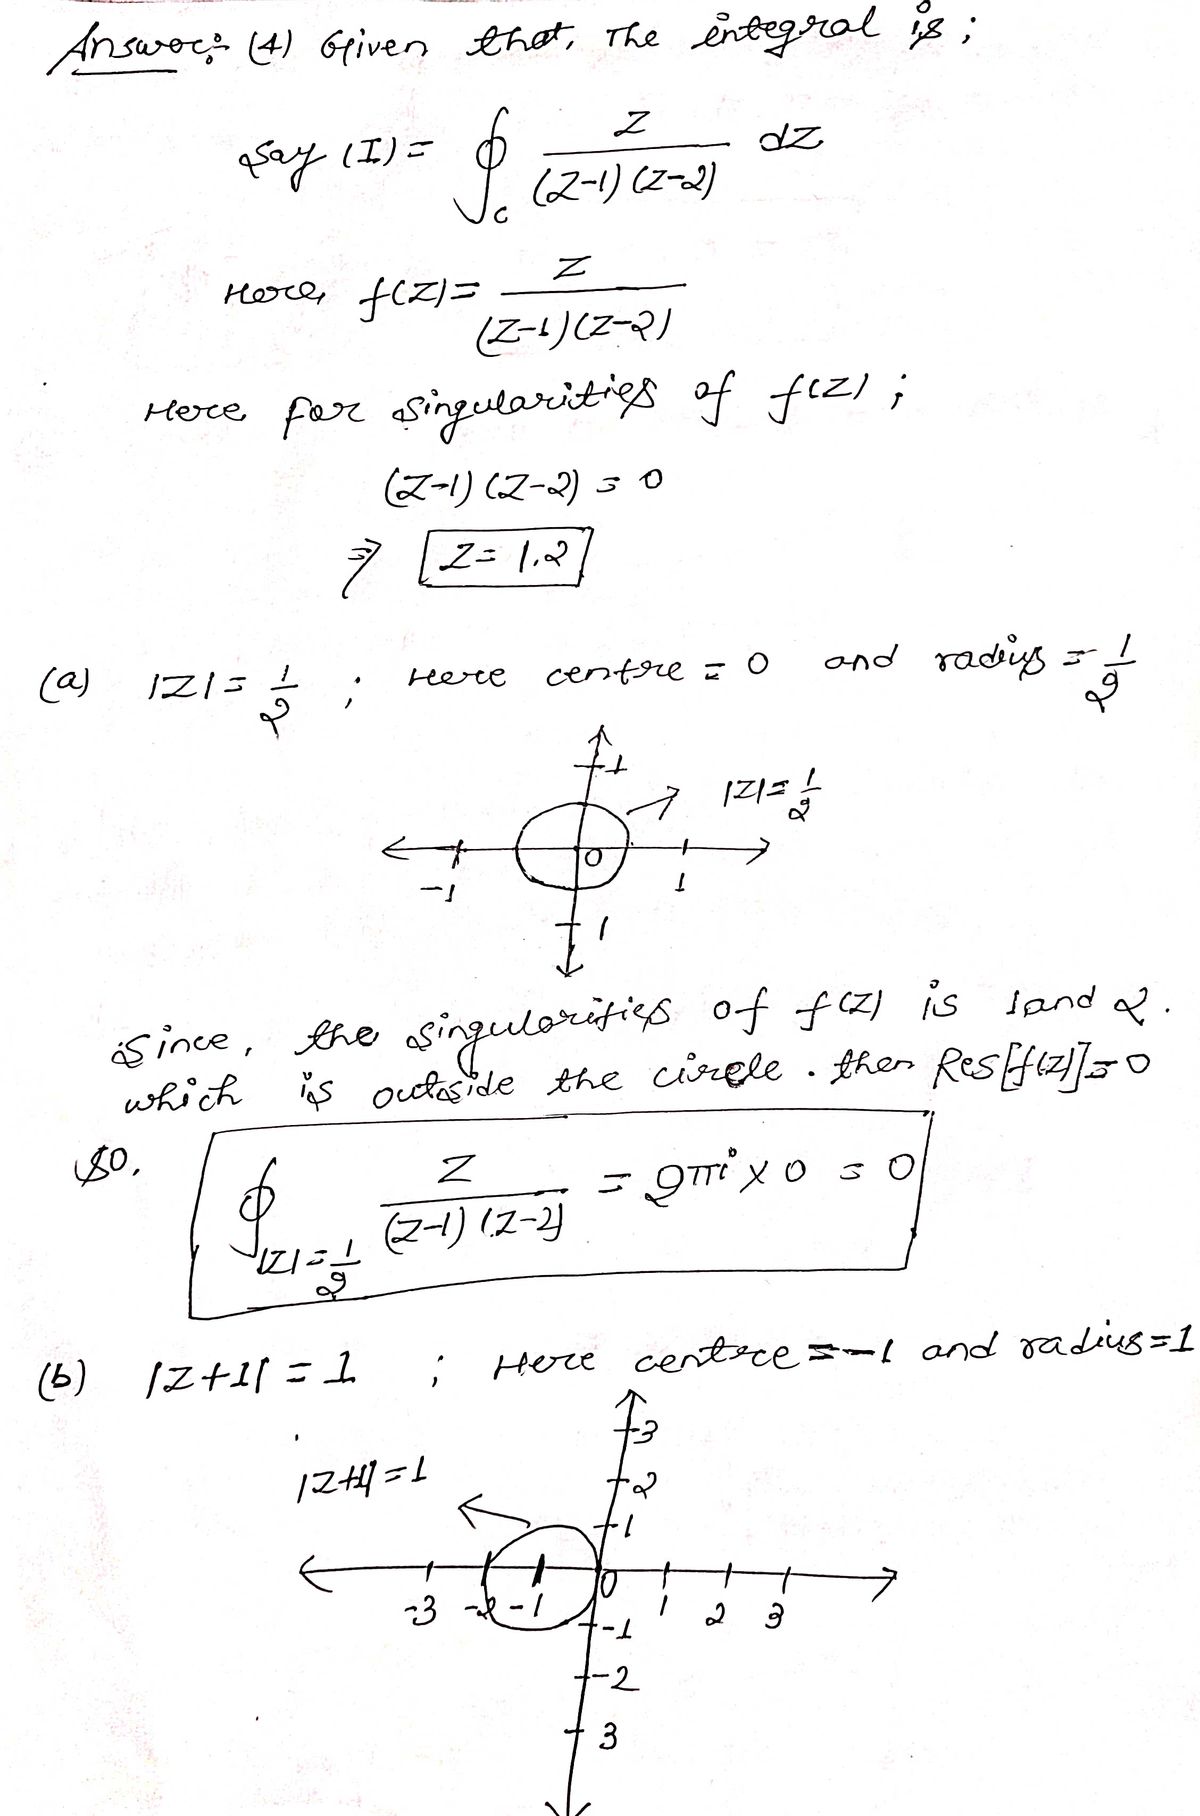 Answer:- (4) Given that, The integral is ;
Say (I) = ∮_C z/((z-1)(z-2)) dz
Here, f(z) = z/((z-1)(z-2))
Here for singularities of f(z) ;
(z-1)(z-2) = 0
⇒ z = 1,2
(a) |z| = 1/2 ; Here centre = 0 and radius = 1/2
1
|z| = 1/2
-1 0 1
1
Since, the singularities of f(z) is 1 and 2.
which is outside the circle. then Res[f(z)] = 0
So, ∮_|z|=1/2 z/((z-1)(z-2)) = 2πi × 0 = 0
(b) |z+1| = 1 ; Here centre = -1 and radius = 1
3
|z+1| = 1
2
1
-3 -2 -1 0 1 2 3
-1
-2
3